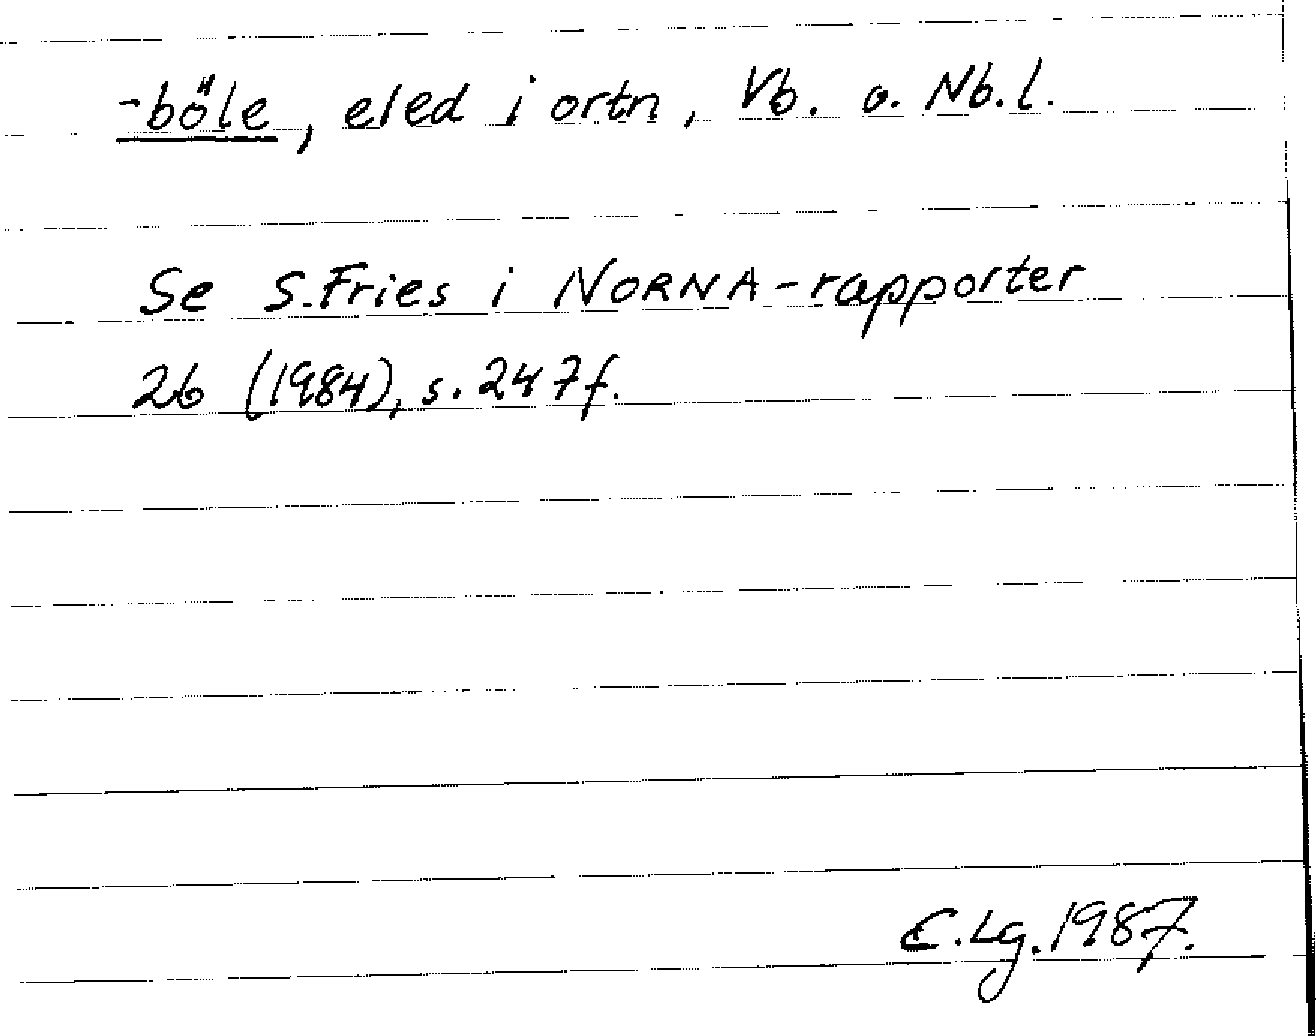 -böle, eled i ortn, Vb. o. Nb.l.
Se S. Fries i NORNA-rapporter
26 (1984), s. 247f.
E.Lg. 1987.